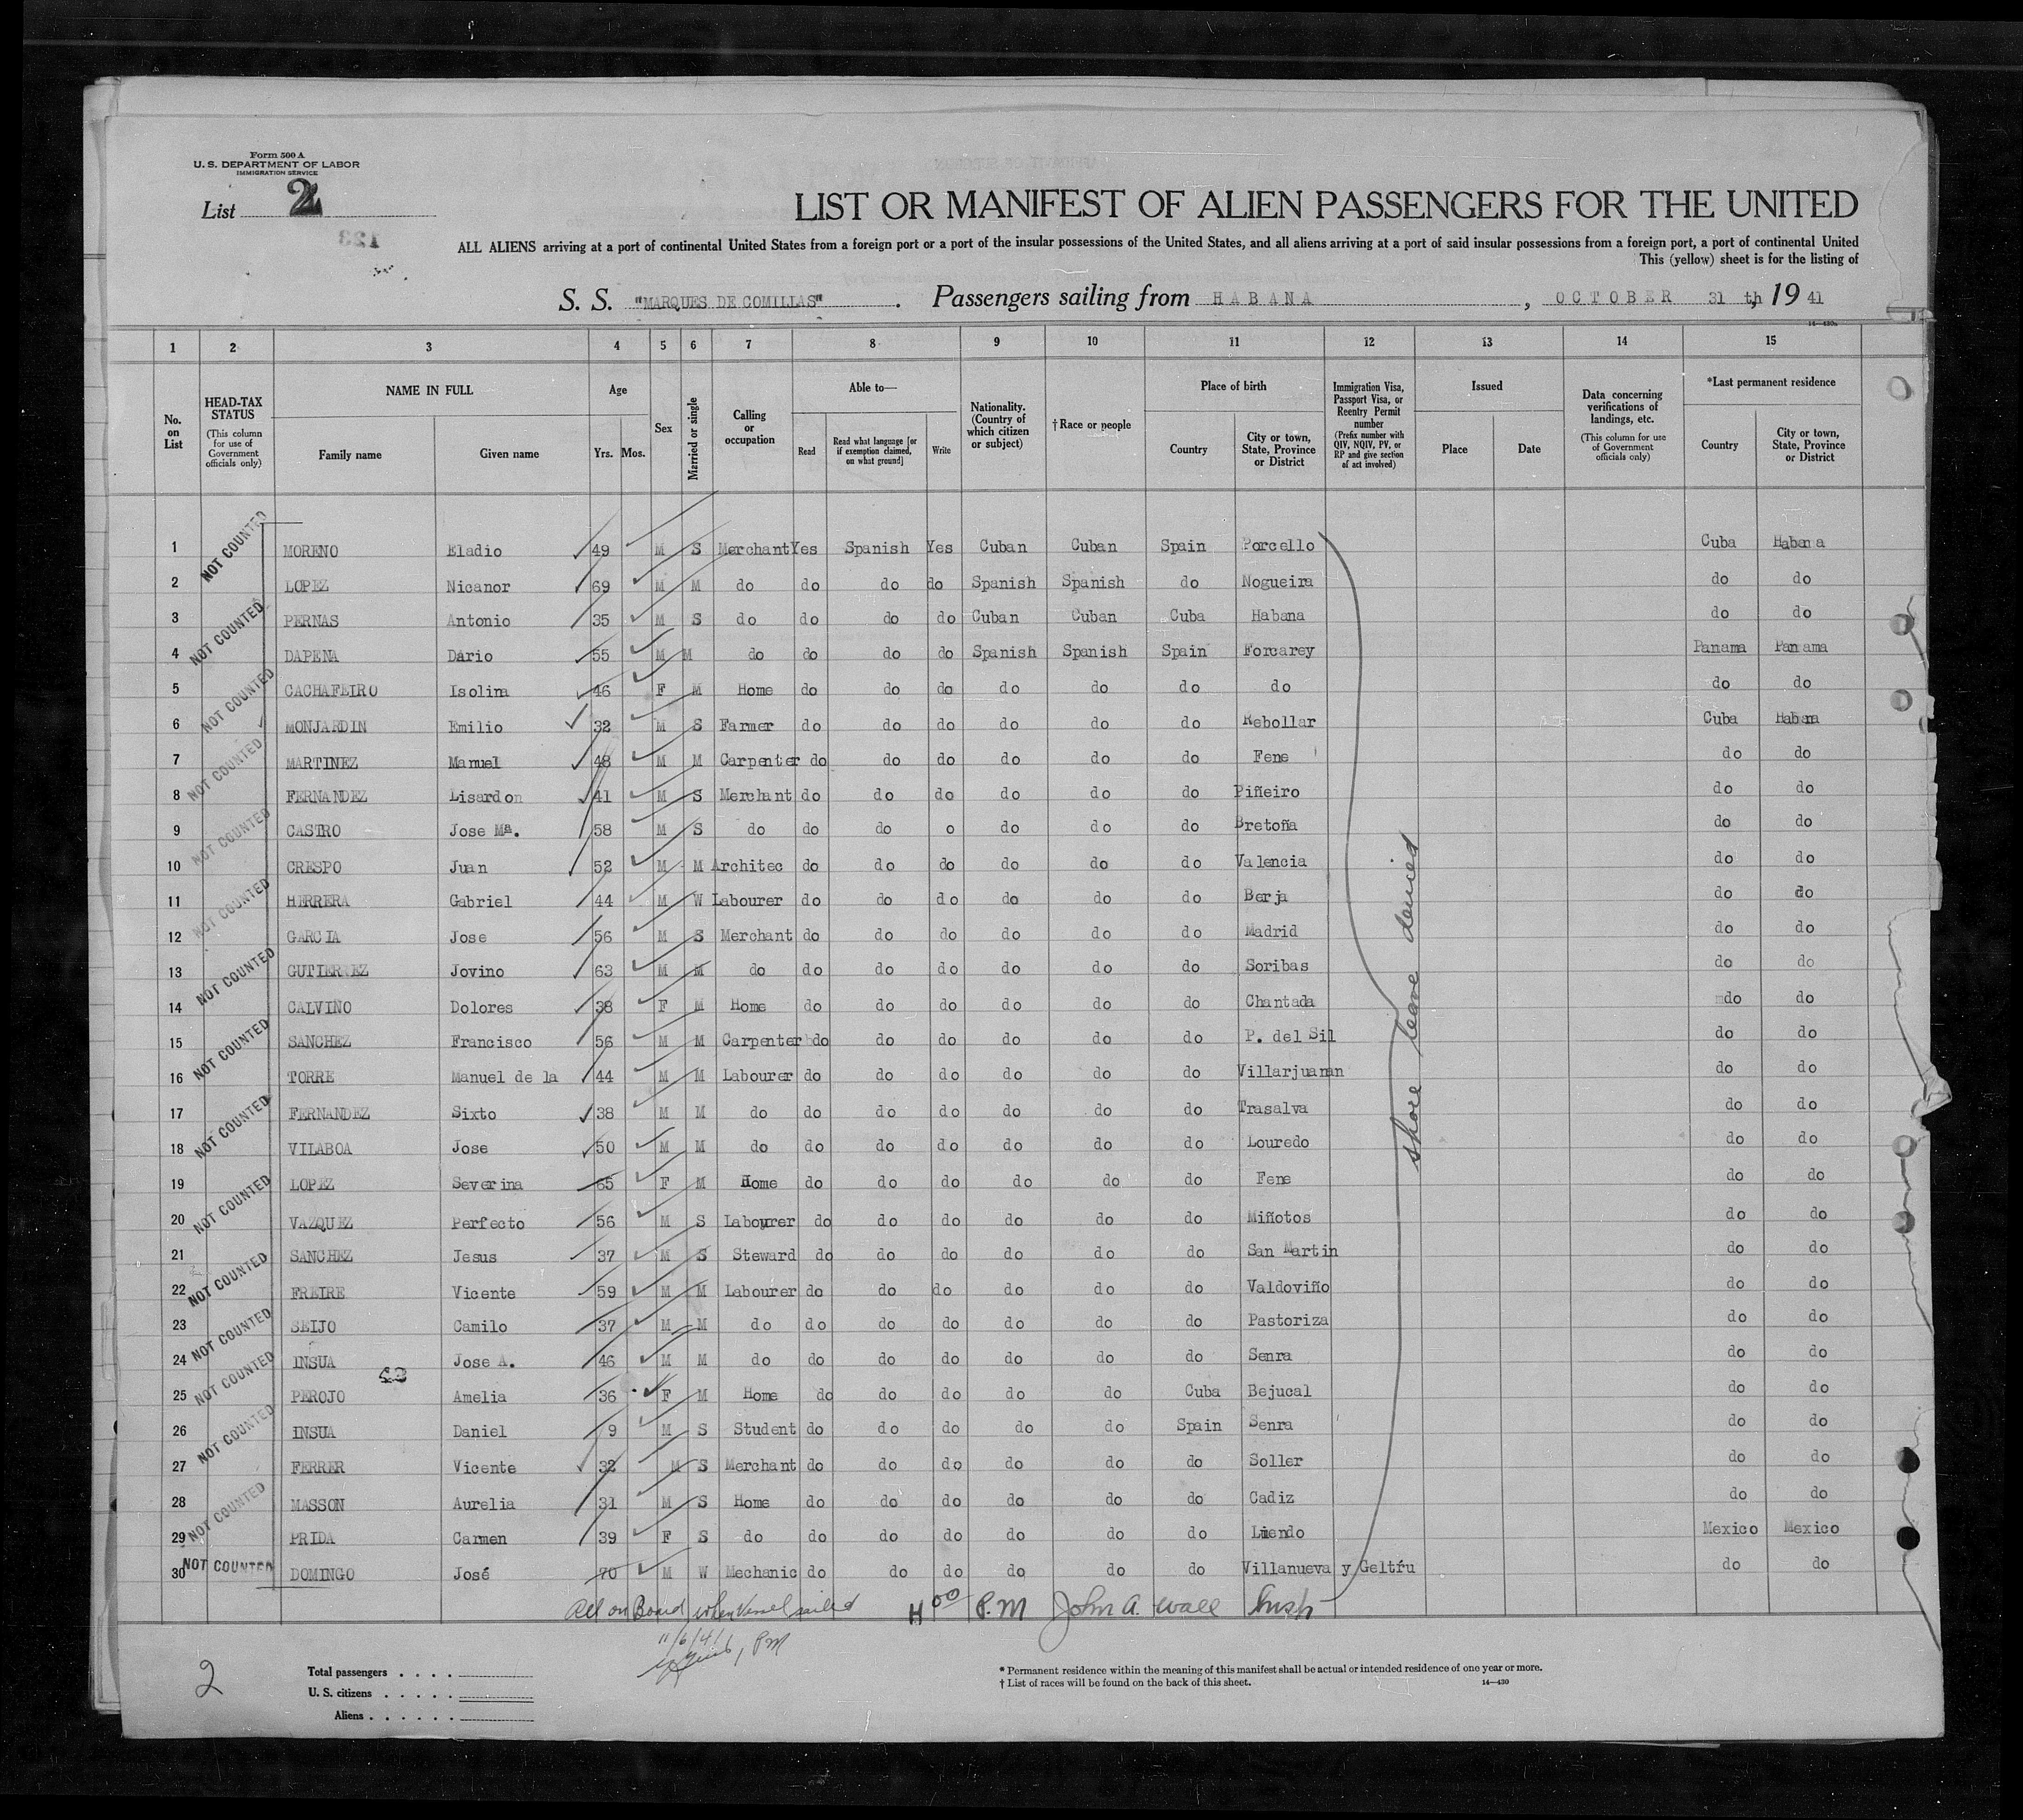 Form 500 A
U. S. DEPARTMENT OF LABOR
IMMIGRATION SERVICE
List 2
123
LIST OR MANIFEST OF ALIEN PASSENGERS FOR THE UNITED
ALL ALIENS arriving at a port of continental United States from a foreign port or a port of the insular possessions of the United States, and all aliens arriving at a port of said insular possessions from a foreign port, a port of continental United
This (yellow) sheet is for the listing of
S. S. "MARQUES DE COMILLAS". Passengers sailing from HABANA, OCTOBER 31 th, 19 41
14—430a
1 2 3 4 5 6 7 8 9 10 11 12 13 14 15
No. on List
HEAD-TAX STATUS (This column for use of Government officials only)
NAME IN FULL Family name Given name
Age Yrs. Mos.
Sex
Married or single
Calling or occupation
Able to— Read Read what language [or if exemption claimed, on what ground] Write
Nationality. (Country of which citizen or subject)
†Race or people
Place of birth Country City or town, State, Province or District
Immigration Visa, Passport Visa, or Reentry Permit number (Prefix number with QIV, NQIV, PV, or RP and give section of act involved)
Issued Place Date
Data concerning verifications of landings, etc. (This column for use of Government officials only)
*Last permanent residence Country City or town, State, Province or District
1 NOT COUNTED MORENO Eladio 49 M S Merchant Yes Spanish Yes Cuban Cuban Spain Porcello Cuba Habana
2 LOPEZ Nicanor 69 M M do do do do Spanish Spanish do Nogueira do do
3 NOT COUNTED PERNAS Antonio 35 M S do do do do Cuban Cuban Cuba Habana do do
4 DAPENA Dario 55 M M do do do do Spanish Spanish Spain Forcarey Panama Panama
5 NOT COUNTED CACHAFEIRO Isolina 46 F M Home do do do do do do do do do
6 MONJARDIN Emilio 32 M S Farmer do do do do do do Rebollar Cuba Habana
7 NOT COUNTED MARTINEZ Manuel 48 M M Carpenter do do do do do do Fene do do
8 FERNANDEZ Lisardon 41 M S Merchant do do do do do do Piñeiro do do
9 NOT COUNTED CASTRO Jose Mª. 58 M S do do do o do do do Bretoña do do
10 CRESPO Juan 52 M M Architec do do do do do do Valencia do do
11 NOT COUNTED HERRERA Gabriel 44 M W Labourer do do do do do do Berja do do
12 GARCIA Jose 56 M S Merchant do do do do do do Madrid do do
13 NOT COUNTED GUTIERREZ Jovino 63 M M do do do do do do do Soribas do do
14 CALVINO Dolores 38 F M Home do do do do do do Chantada do do
15 NOT COUNTED SANCHEZ Francisco 56 M M Carpenter do do do do do do P. del Sil do do
16 TORRE Manuel de la 44 M M Labourer do do do do do do Villarjuanan do do
17 NOT COUNTED FERNANDEZ Sixto 38 M M do do do do do do do Trasalva do do
18 VILABOA Jose 50 M M do do do do do do do Louredo do do
19 NOT COUNTED LOPEZ Severina 65 F M Home do do do do do do Fene do do
20 VAZQUEZ Perfecto 56 M S Labourer do do do do do do Miñotos do do
21 NOT COUNTED SANCHEZ Jesus 37 M S Steward do do do do do do San Martin do do
22 FREIRE Vicente 59 M M Labourer do do do do do do Valdoviño do do
23 NOT COUNTED SEIJO Camilo 37 M M do do do do do do do Pastoriza do do
24 NOT COUNTED INSUA Jose A. 46 M M do do do do do do do Senra do do
25 PEROJO Amelia 36 F M Home do do do do do Cuba Bejucal do do
26 NOT COUNTED INSUA Daniel 9 M S Student do do do do do Spain Senra do do
27 FERRER Vicente 32 M S Merchant do do do do do do Soller do do
28 NOT COUNTED MASSON Aurelia 31 M S Home do do do do do do Cadiz do do
29 PRIDA Carmen 39 F S do do do do do do do Liendo Mexico Mexico
30 NOT COUNTED DOMINGO José 70 M W Mechanic do do do do do do Villanueva y Geltŕu do do
shore leave denied
All on Board when Vessel sailed H 00 P.M John A. Wall Insp
11/6/41
PM
2
Total passengers
U. S. citizens
Aliens
* Permanent residence within the meaning of this manifest shall be actual or intended residence of one year or more.
† List of races will be found on the back of this sheet.
14—430